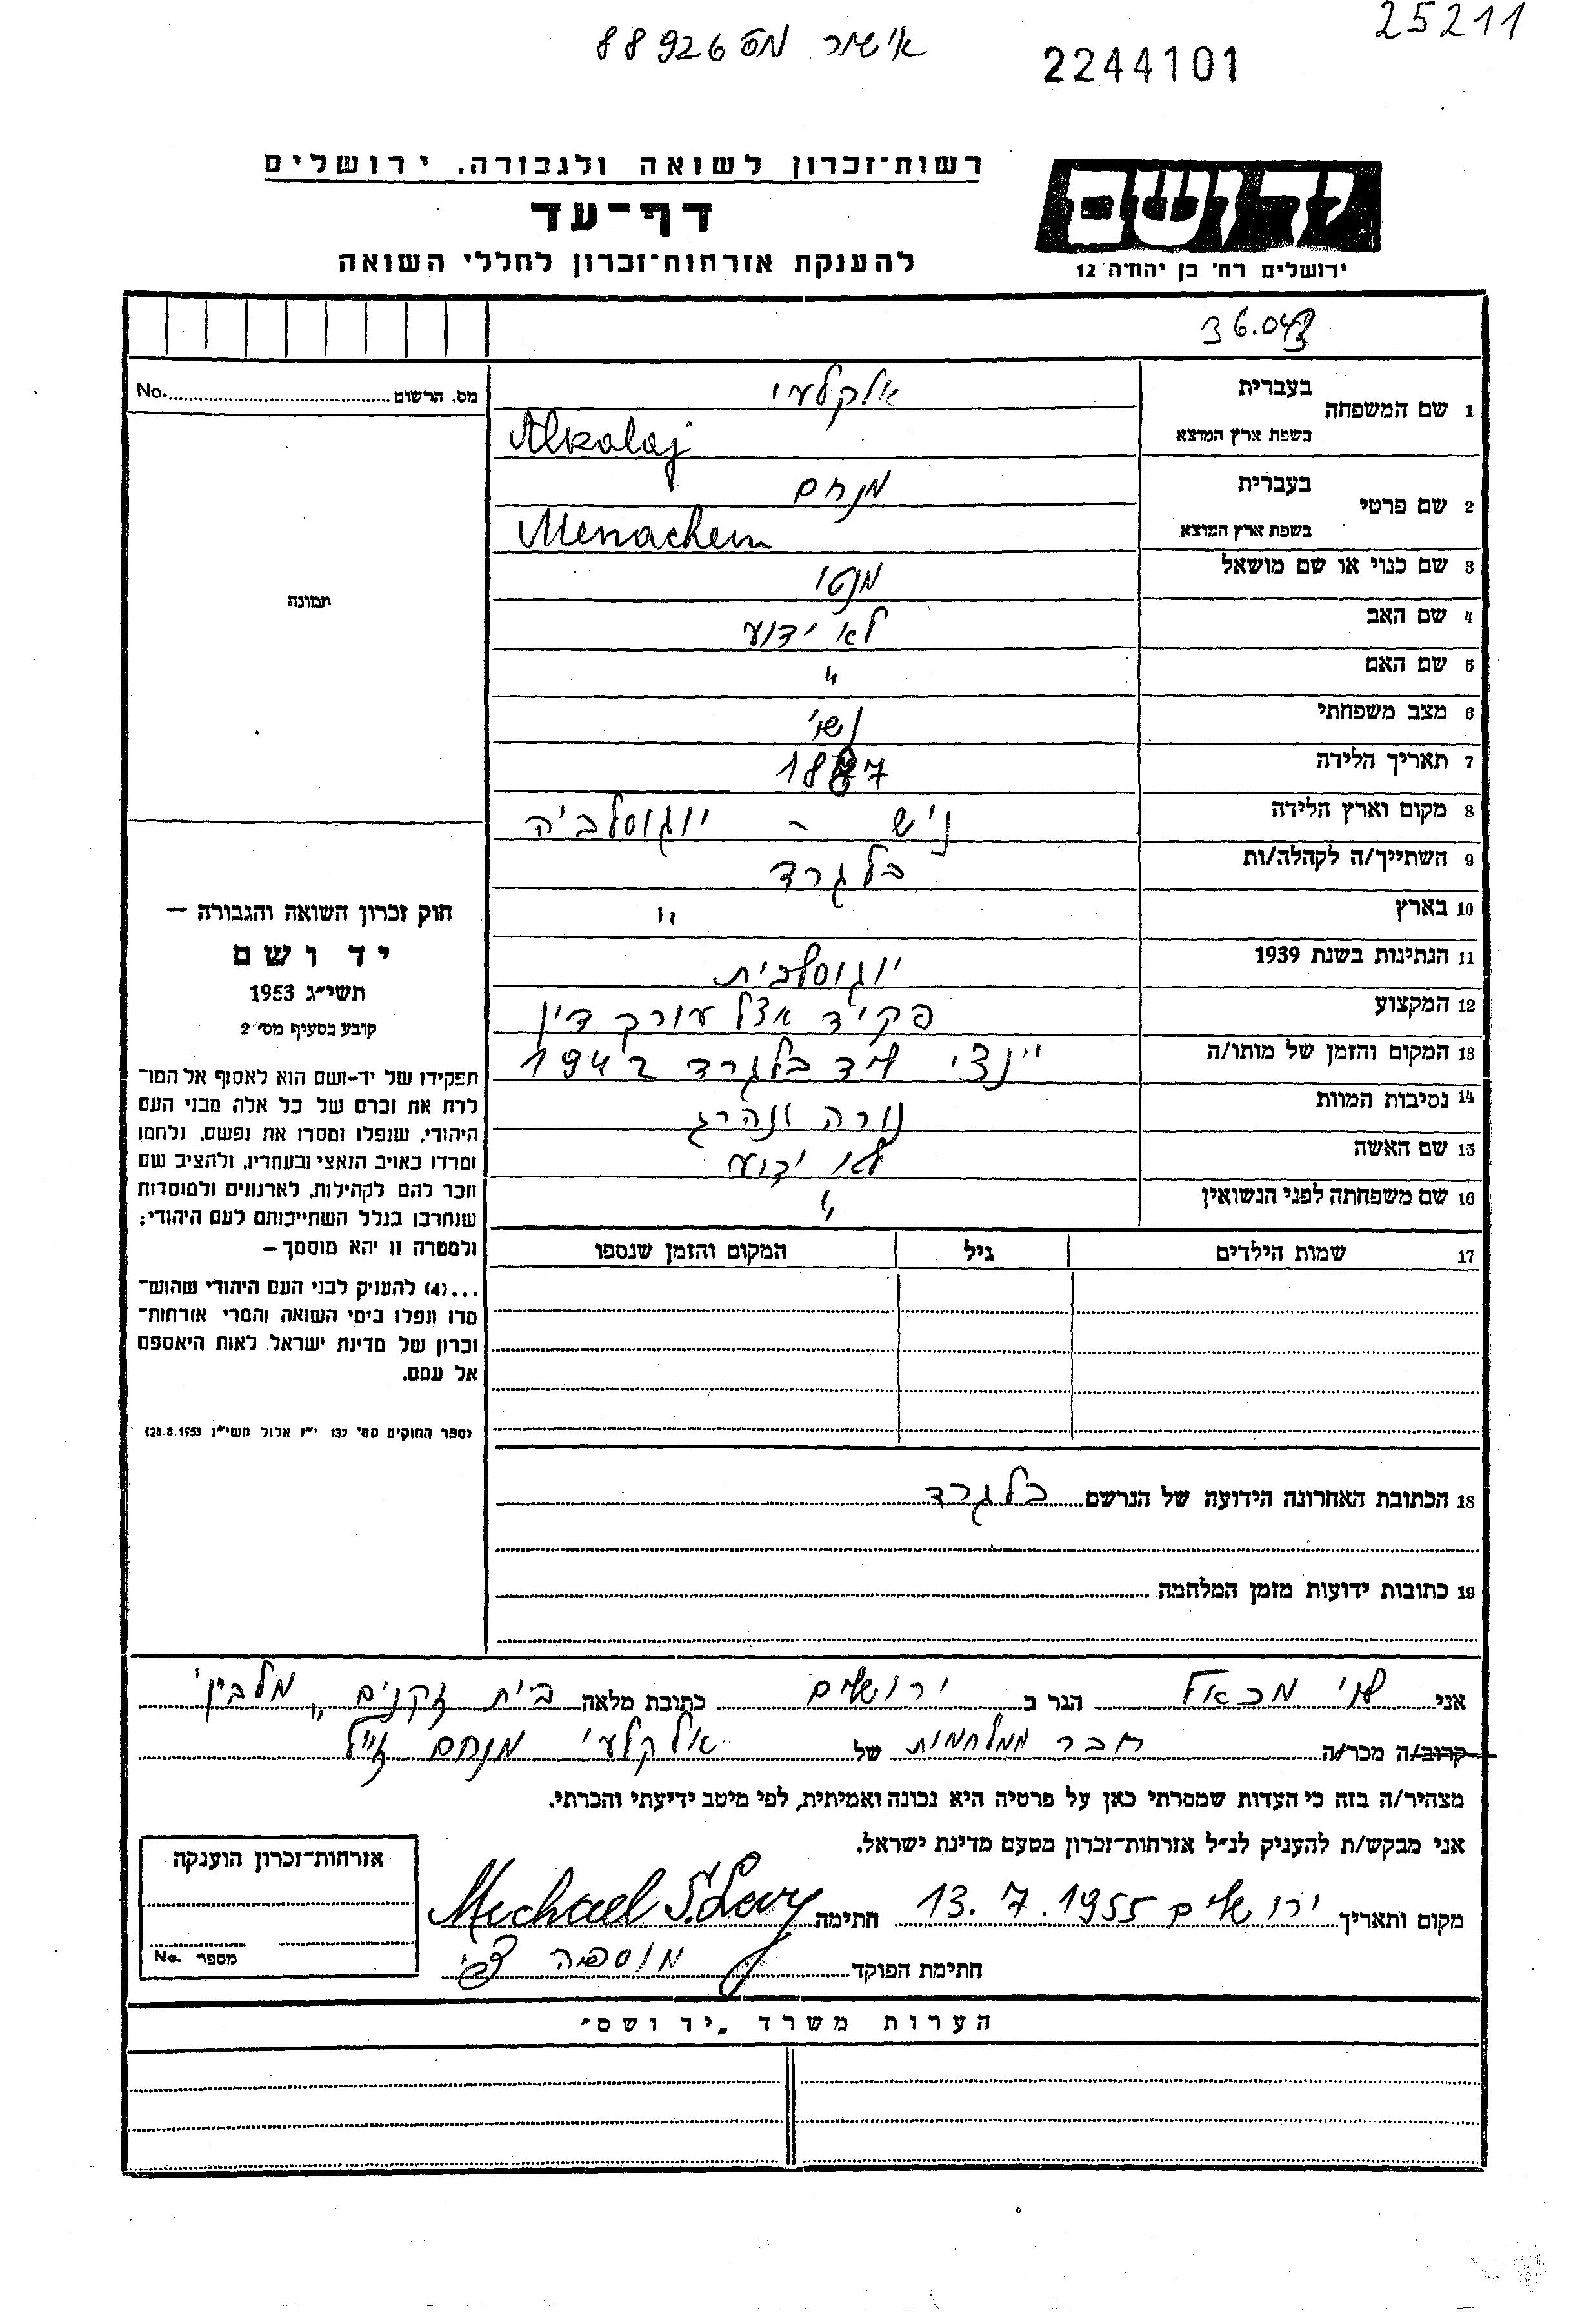 25211
אישור מס 88926
2244101
רשות־זכרון לשואה ולגבורה. ירושלים
דף־עד
להענקת אזרחות־זכרון לחללי השואה
יד ושם
ירושלים רח' בן יהודה 12
מס. הרשום No.
תמונה
1 שם המשפחה בעברית אלקלעי
בשפת ארץ המוצא Alkalaj
2 שם פרטי בעברית מנחם
בשפת ארץ המוצא Menachem
3 שם כנוי או שם מושאל מנטו
4 שם האב לא ידוע
5 שם האם "
6 מצב משפחתי נשוי
7 תאריך הלידה 1887
8 מקום וארץ הלידה ניש - יוגוסלביה
9 השתייך/ה לקהלה/ות בלגרד
10 בארץ "
11 הנתינות בשנת 1939 יוגוסלבית
12 המקצוע פקיד אצל עורך דין
13 המקום והזמן של מותו/ה ליד בלגרד 1942
14 נסיבות המוות נורה ונהרג
15 שם האשה לא ידוע
16 שם משפחתה לפני הנשואין "
17 שמות הילדים גיל המקום והזמן שנספו
חוק זכרון השואה והגבורה —
יד ושם
תשי"ג 1953
קובע בסעיף מס' 2
תפקידו של יד-ושם הוא לאסוף אל המו־
לדת את זכרם של כל אלה מבני העם
היהודי, שנפלו ומסרו את נפשם, נלחמו
ומרדו באויב הנאצי ובעוזריו, ולהציב שם
וזכר להם לקהילות, לארגונים ולמוסדות
שנחרבו בגלל השתייכותם לעם היהודי;
ולמטרה זו יהא מוסמך —
...(4) להעניק לבני העם היהודי שהוש־
מדו ונפלו בימי השואה והמרי אזרחות־
זכרון של מדינת ישראל לאות היאספם
אל עמם.
(ספר החוקים מס' 132 י"ז אלול תשי"ג 28.8.1953)
18 הכתובת האחרונה הידועה של הנרשם בלגרד
19 כתובות ידועות מזמן המלחמה
אני לוי מכאל הגר ב ירושלים כתובת מלאה בית זקנים "מלבין'
קרוב/ה מכר/ה חבר ממלחמות של אלקלעי מנחם ז"ל
מצהיר/ה בזה כי העדות שמסרתי כאן על פרטיה היא נכונה ואמיתית, לפי מיטב ידיעתי והכרתי.
אני מבקש/ת להעניק לנ"ל אזרחות־זכרון מטעם מדינת ישראל.
מקום ותאריך ירושלים 13.7.1955 חתימה Michael S. Levy
חתימת הפוקד מוספיה צבי
אזרחות־זכרון הוענקה
מספר No.
הערות משרד „יד ושם"